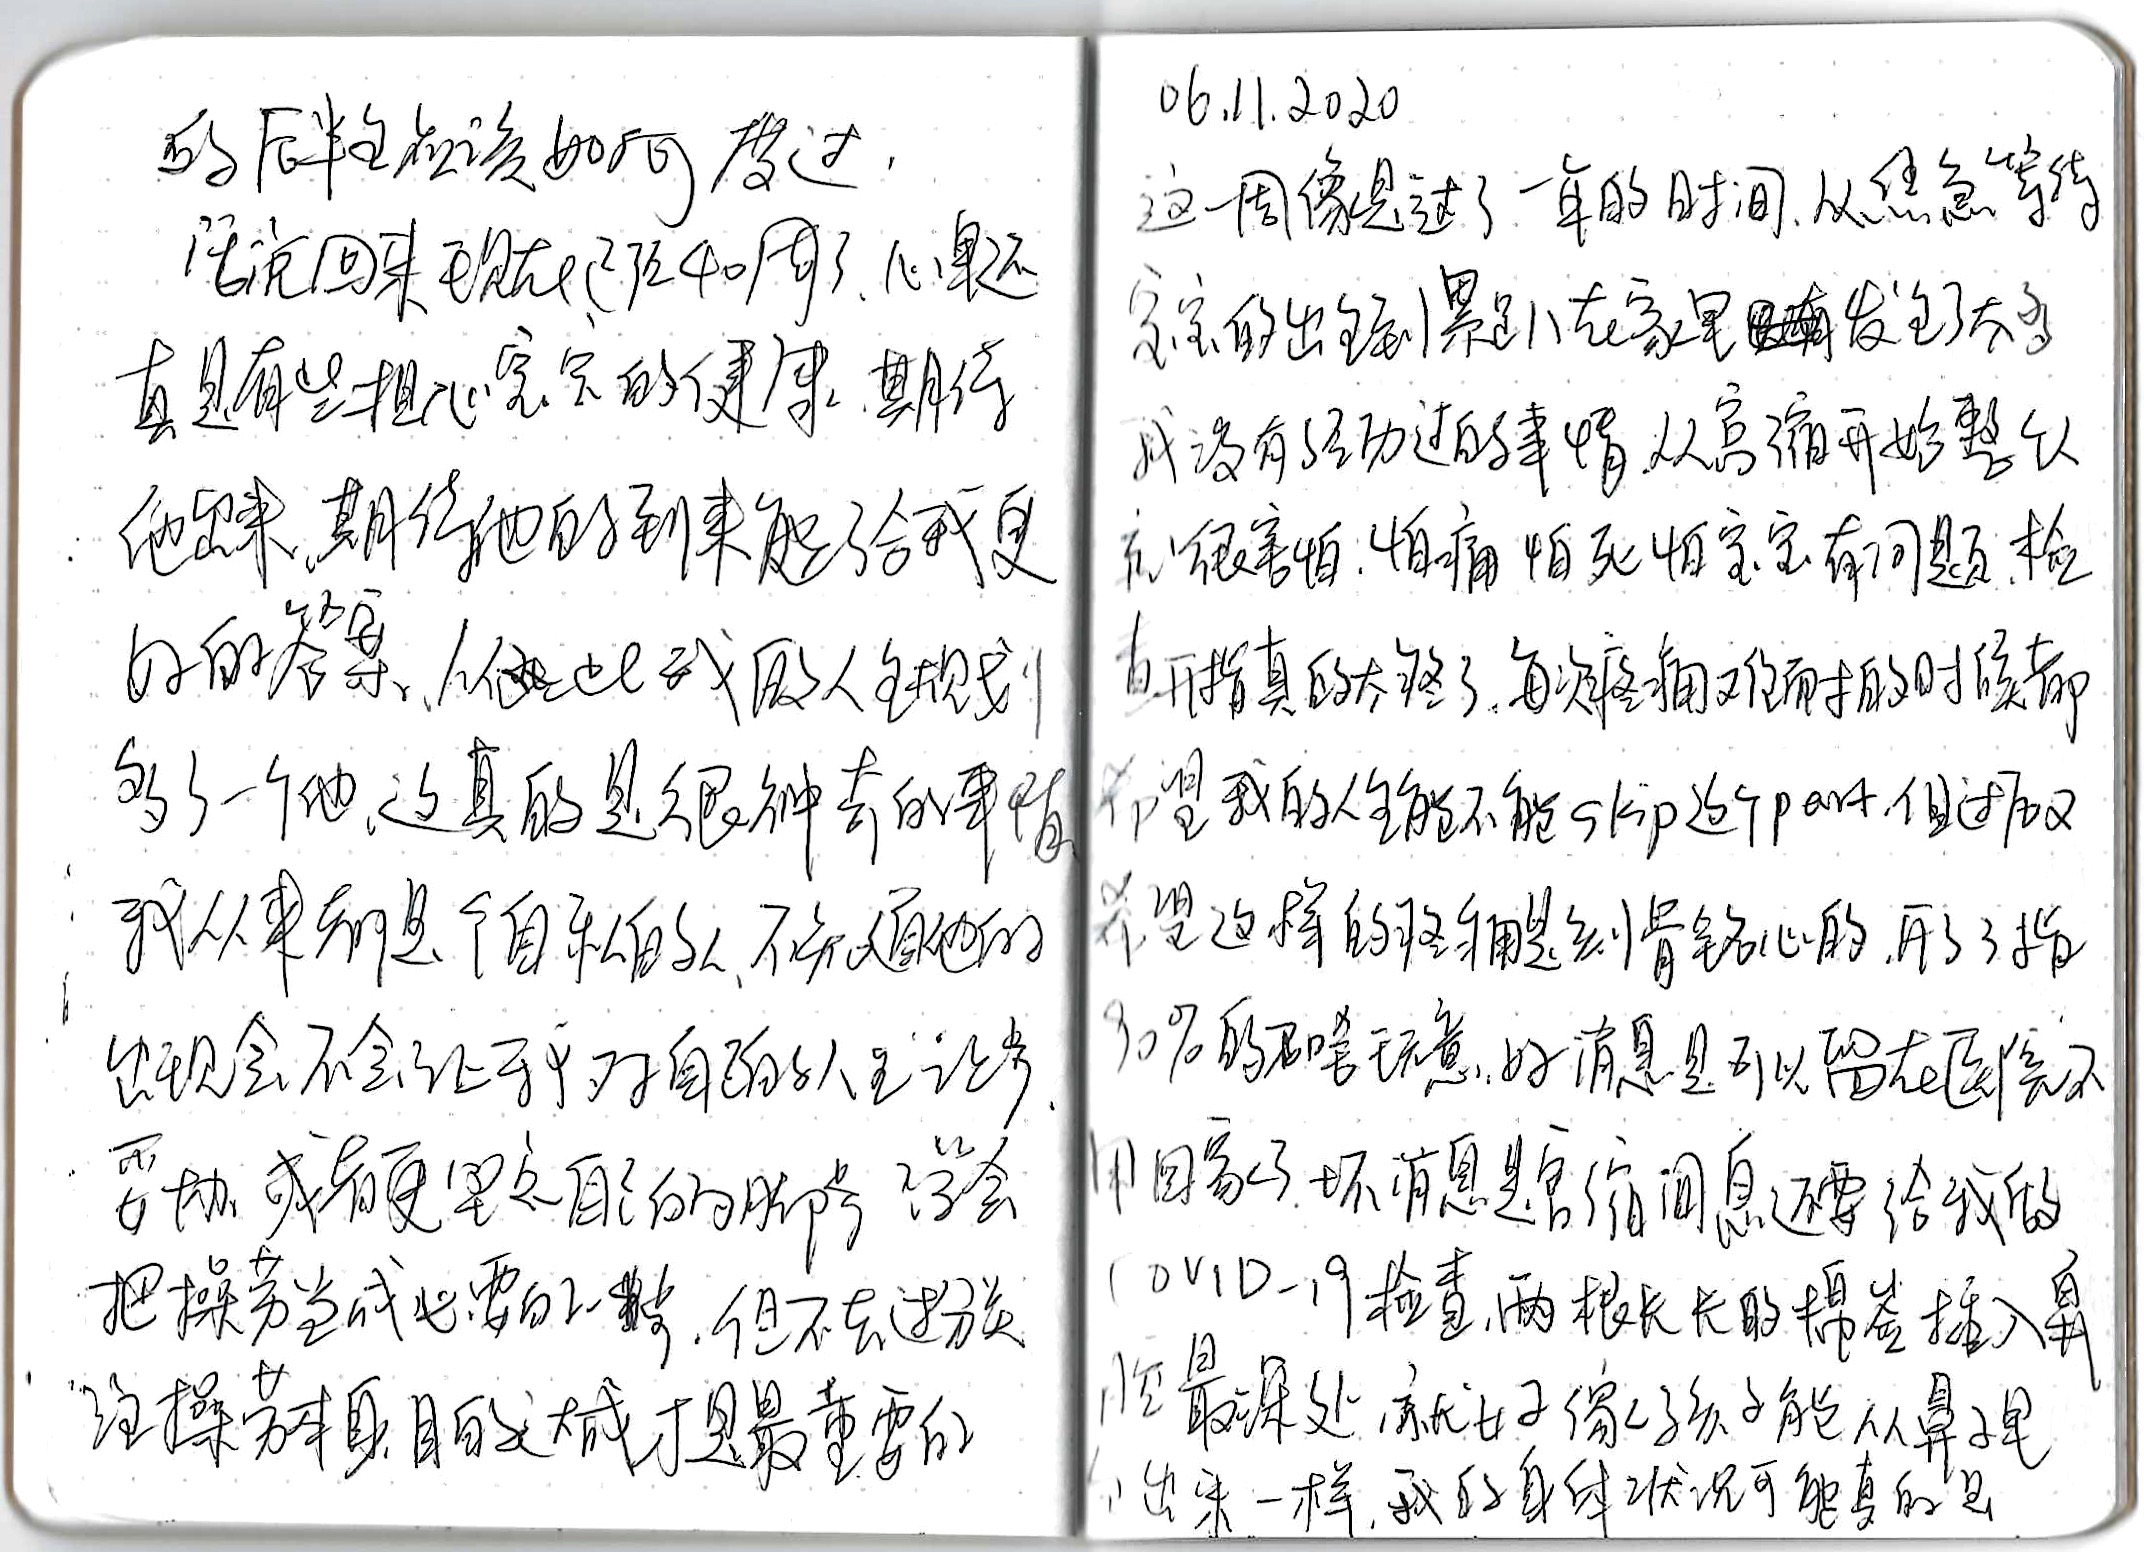 的后半生应该如何度过.
话说回来现在已经40周了、心里还
真是有些担心宝宝的健康、期待
他出来、期待他的到来能够给我更
好的答案、从此我的人生规划
多了一个他、这真的是很神奇的事情、
我从来都是个自私的人、不知道他的
出现会不会让我对自己的人生让步、
妥协、或者更坚定自己的脚步 学会
把操劳当成必要的步骤、但不去过分关
注操劳本身、目的达成才是最重要的
06.11.2020
这一周像是过了一年的时间、从焦急等待
宝宝的出生到累趴在家里 发生了太多
我没有经历过的事情、从宫缩开始整个人
就很害怕、怕痛怕死怕宝宝有问题、检
查开指真的太疼了、每次疼痛难耐的时候都
希望我的人生能不能skip这个part、但过后又
希望这样的疼痛是刻骨铭心的、开了3指
90%的 、好消息是可以留在医院不
用回家了、坏消息是宫缩间息还要给我做
COVID-19检查、两根长长的棉签插入鼻
腔最深处 就好像孩子能从鼻子里
出来一样、我的身体状况可能真的是